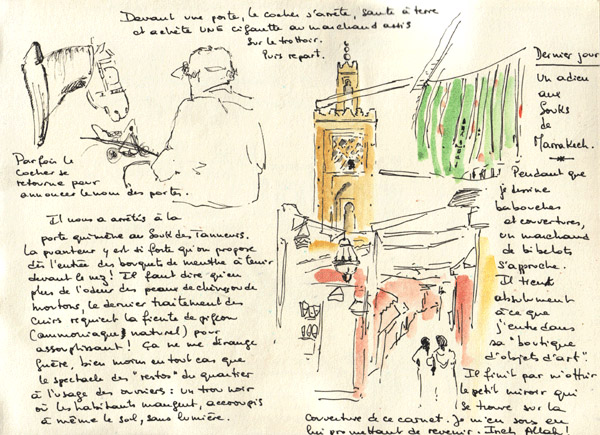 Devant une porte, le cocher s'arrête, saute à terre
et achète UNE cigarette au marchand assis
sur le trottoir.
Puis repart.
Parfois le
cocher se
retourne pour
annoncer le nom des portes.
Il nous a arrêtés à la
porte qui mène au Souk des Tanneurs.
La puanteur y est si forte qu'on propose
dès l'entrée des bouquets de menthe à tenir
devant le nez ! Il faut dire qu'en
plus de l'odeur des peaux de chèvres ou de
moutons, le dernier traitement des
cuirs requiert la fiente de pigeon
(ammoniaque naturel) pour
assouplissant ! Ça ne me dérange
guère, bien moins en tout cas que
le spectacle des "restos" du quartier
à l'usage des ouvriers : un trou noir
où les habitants mangent, accroupis
à même le sol, sans lumière.
Dernier jour
Un adieu
aux
Souks
de
Marrakech.
Pendant que
je dessine
babouches
et couvertures,
un marchand
de bibelots
s'approche.
Il tient
absolument
à ce que
j'entre dans
sa "boutique
d'objets d'art".
Il finit par m'offrir
le petit miroir qui
se trouve sur la
couverture de ce carnet. Je m'en sors en
lui promettant de revenir. Inch Allah !